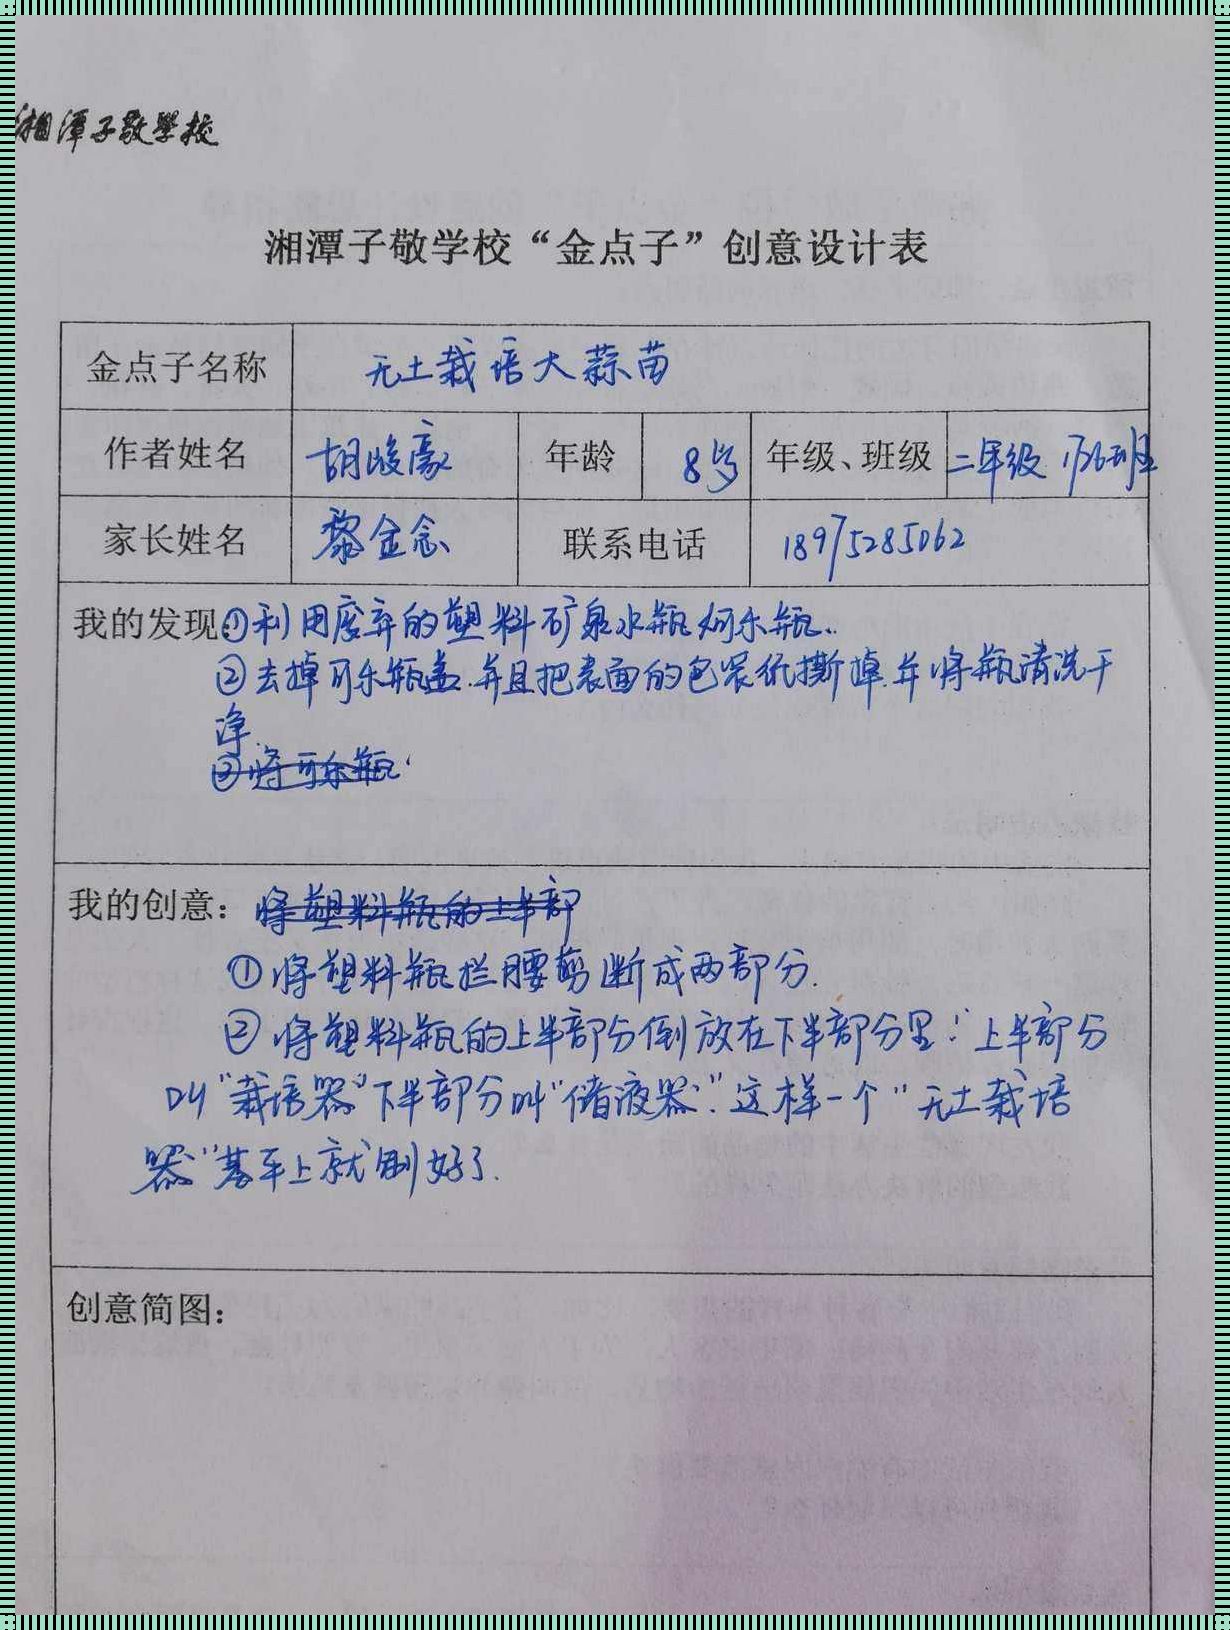 湘潭子敬学校
湘潭子敬学校“金点子”创意设计表
金点子名称 无土栽培大蒜苗
作者姓名 胡峻豪 年龄 8岁 年级、班级 二年级 1726班
家长姓名 黎金念 联系电话 18975285062
我的发现:①利用废弃的塑料矿泉水瓶或可乐瓶.
②去掉可乐瓶盖.并且把表面的包装纸撕掉.并将瓶清洗干
净.
③将可乐瓶
我的创意: 将塑料瓶的上半部
①将塑料瓶拦腰剪断成两部分.
②将塑料瓶的上半部分倒放在下半部分里."上半部分
叫"栽培器"下半部分叫"储液器".这样一个"无土栽培
器"基本上就制好了.
创意简图: